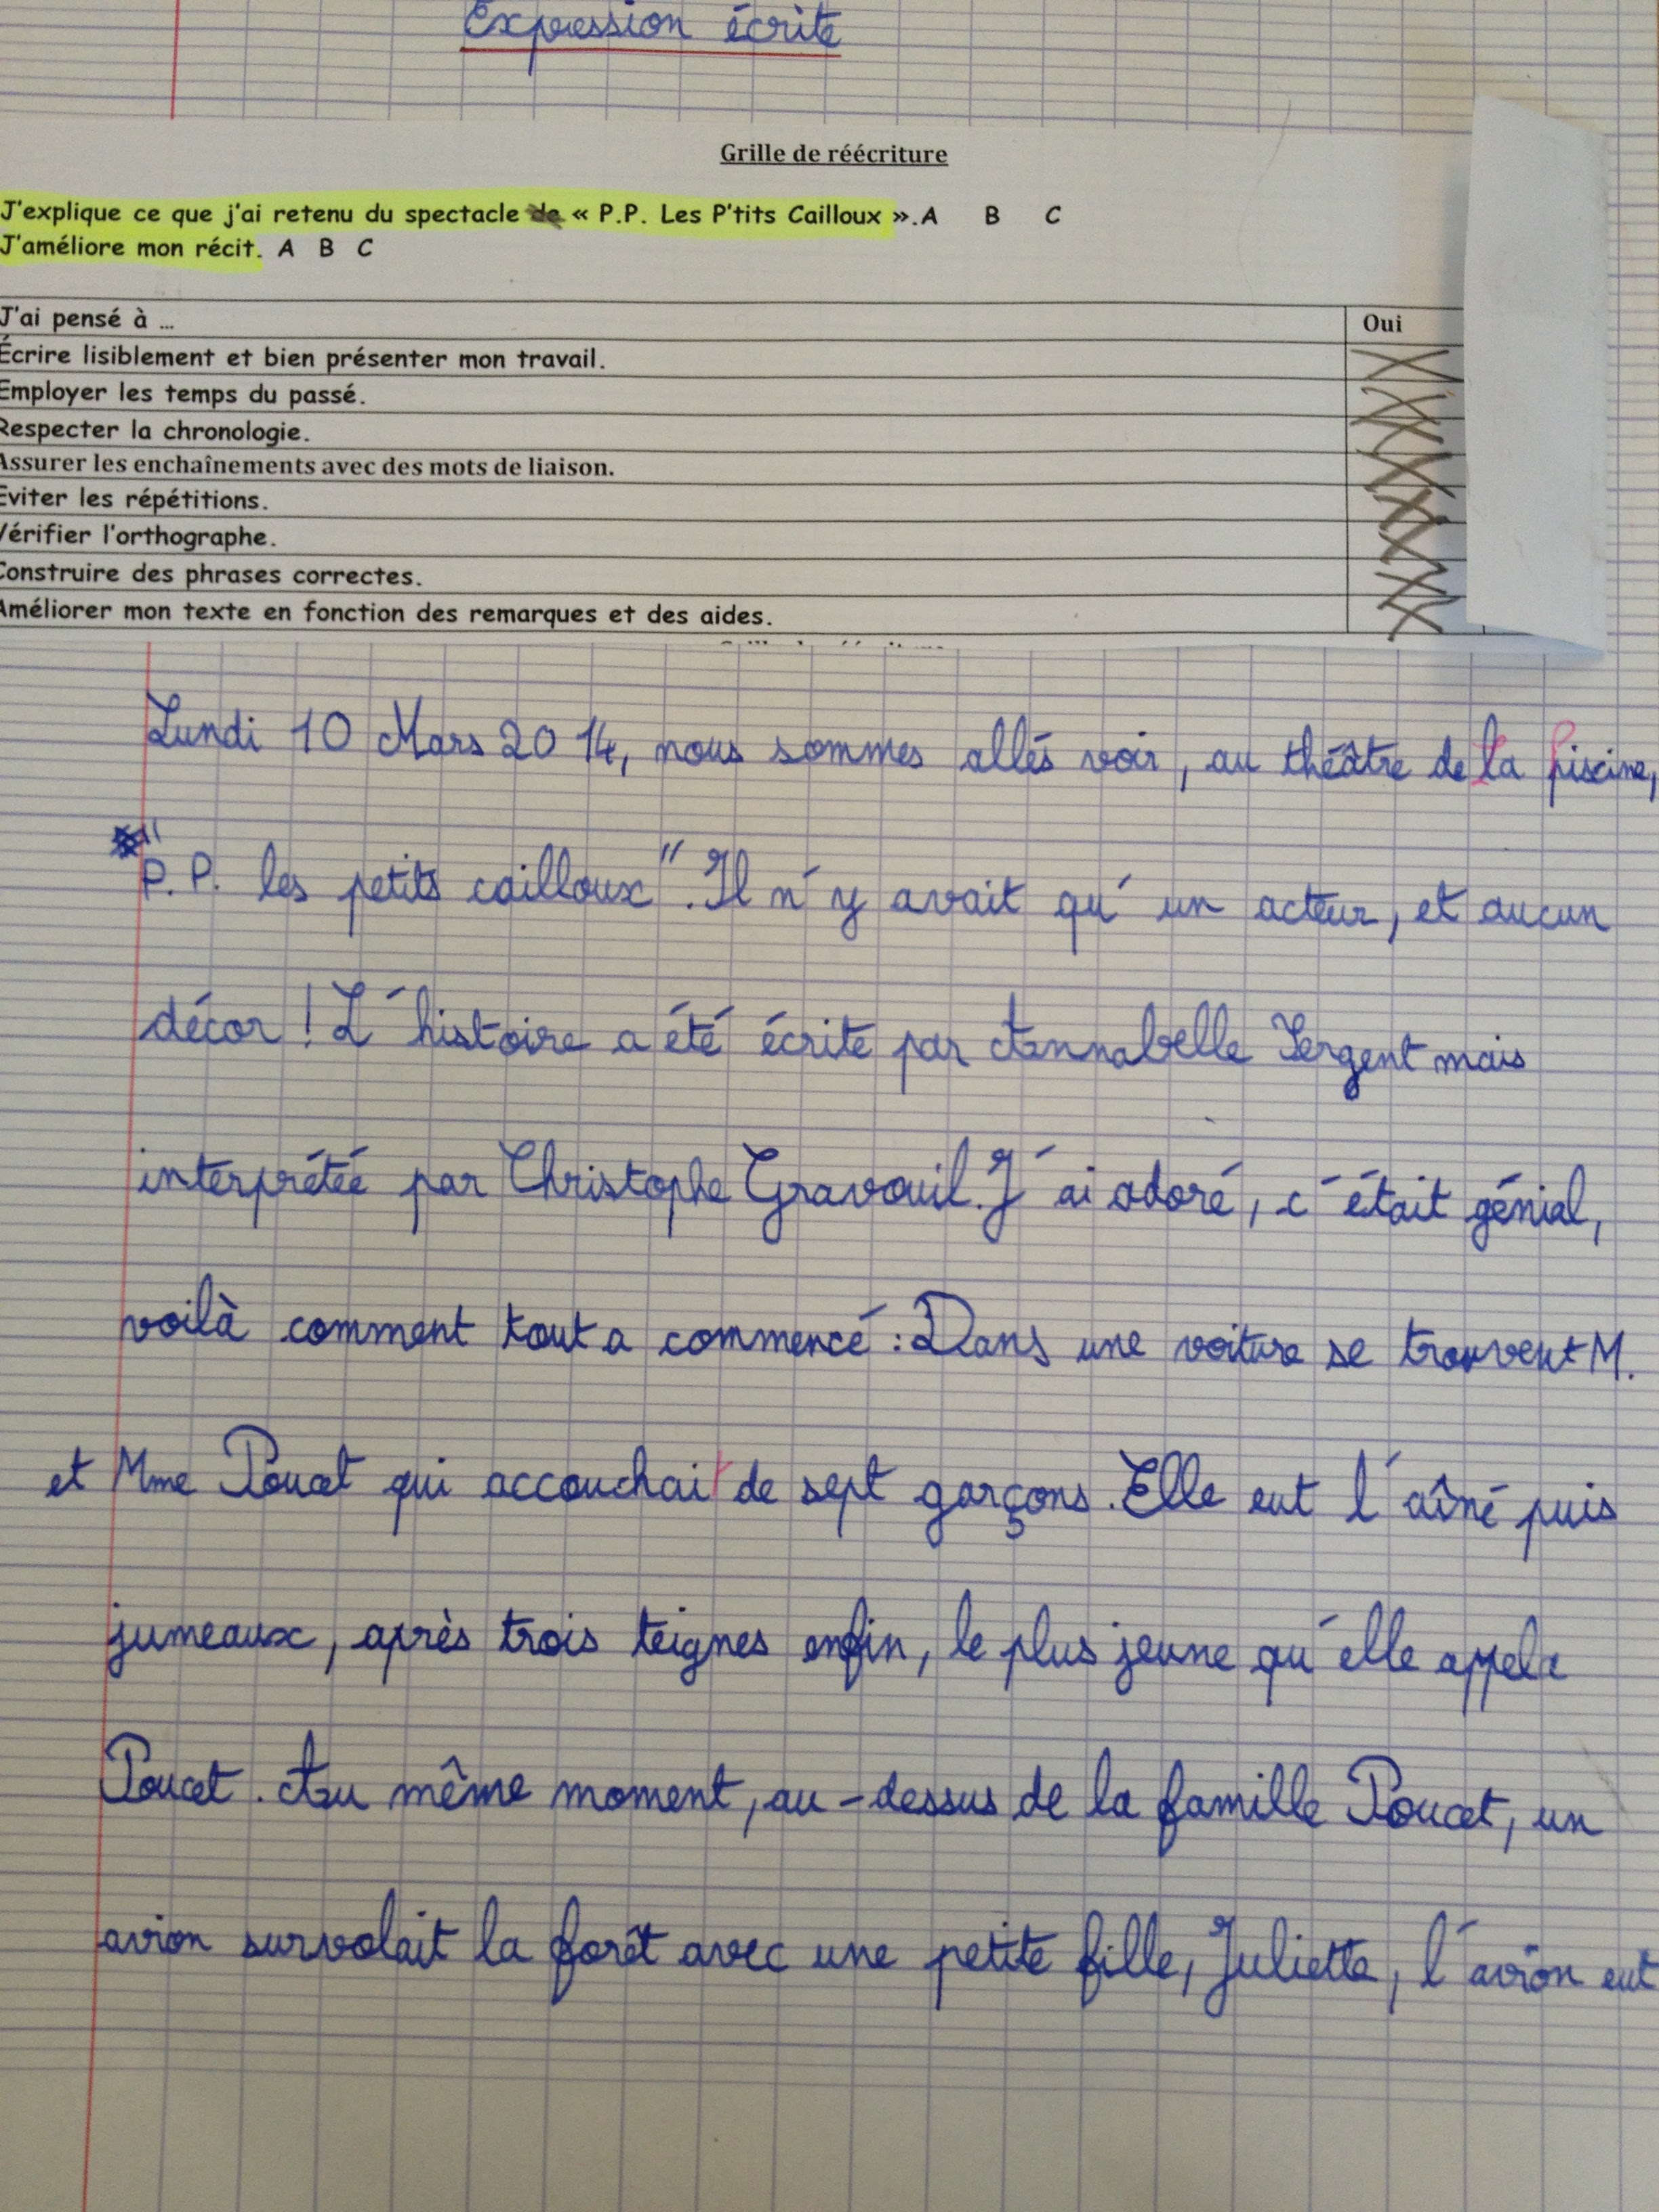 Expression écrite
Grille de réécriture
J'explique ce que j'ai retenu du spectacle de « P.P. Les P'tits Cailloux ». A B C
J'améliore mon récit. A B C
J'ai pensé à ... Oui
Écrire lisiblement et bien présenter mon travail.
Employer les temps du passé.
Respecter la chronologie.
Assurer les enchaînements avec des mots de liaison.
Éviter les répétitions.
Vérifier l'orthographe.
Construire des phrases correctes.
Améliorer mon texte en fonction des remarques et des aides.
Lundi 10 Mars 2014, nous sommes allés voir, au théâtre de La Piscine,
"P.P. les petits cailloux". Il n'y avait qu'un acteur, et aucun
décor ! L'histoire a été écrite par Annabelle Sergent mais
interprétée par Christophe Gravouil. J'ai adoré, c'était génial,
voilà comment tout a commencé : Dans une voiture se trouvent M.
et Mme Poucet qui accouchait de sept garçons. Elle eut l'aîné puis
jumeaux, après trois teignes enfin, le plus jeune qu'elle appela
Poucet. Au même moment, au-dessus de la famille Poucet, un
avion survolait la forêt avec une petite fille, Juliette, l'avion eut